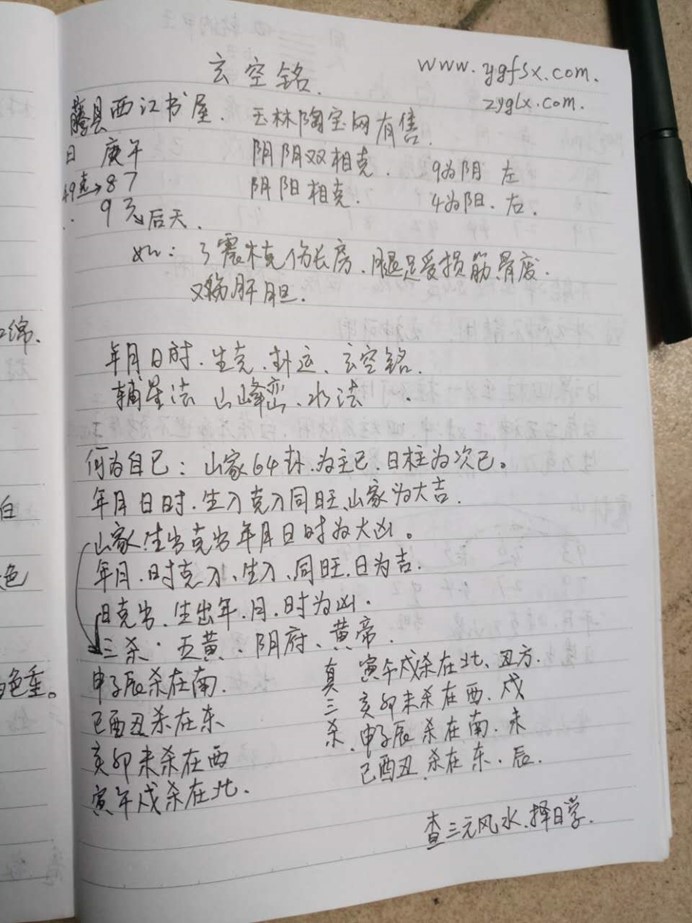 玄空铭.
www.ygfsx.com.
zyglx.com.
藤县西江书屋. 玉林陶宝网有售.
日 庚午 阴阴双相克. 9为阴 左
→87 阴阳相克. 4为阳. 右.
93→后天.
如: 3震木克伤长房. 腿足受损筋骨废.
又肝胆.
年月日时. 生克. 卦运. 玄空铭.
辅星法 山峰峦. 水法 .
何为自己: 山家64卦.为主己.日柱为次己。
年月日时.生入克入同旺.山家为大吉.
山家.生出克出年月日时为大凶。
年月.时克入、生入、同旺.日为吉.
日克出、生出年.月.时为凶.
三杀. 五黄. 阴府、黄帝.
申子辰杀在南.
己酉丑杀在东
亥卯未杀在西
寅午戌杀在北.
真三杀.
寅午戌杀在北、丑方.
亥卯未杀在西. 戌
申子辰 杀在南. 未
己酉丑. 杀在东. 辰.
查三元风水.择日学.
绵.
白
色
色重。